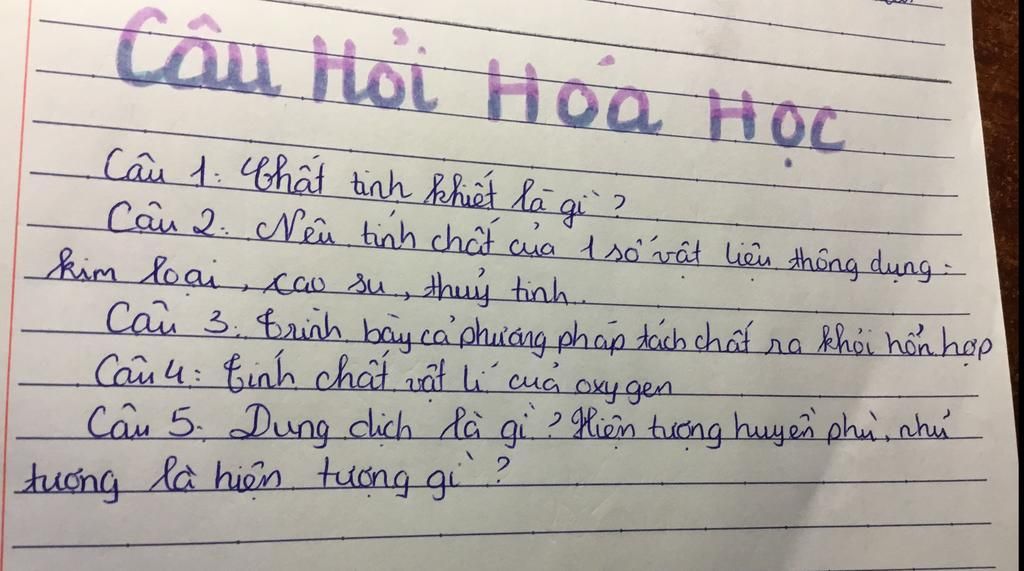 Câu Hỏi Hóa Học
Câu 1: Chất tinh khiết là gì?
Câu 2. Nêu tính chất của 1 số vật liệu thông dụng:
kim loại, cao su, thuỷ tinh.
Câu 3. trình bày cá phương pháp tách chất ra khỏi hổn hợp
Câu 4: tính chất vật lí của oxygen
Câu 5. Dung dịch là gì? Hiện tượng huyền phù, nhủ
tương là hiện tượng gì?